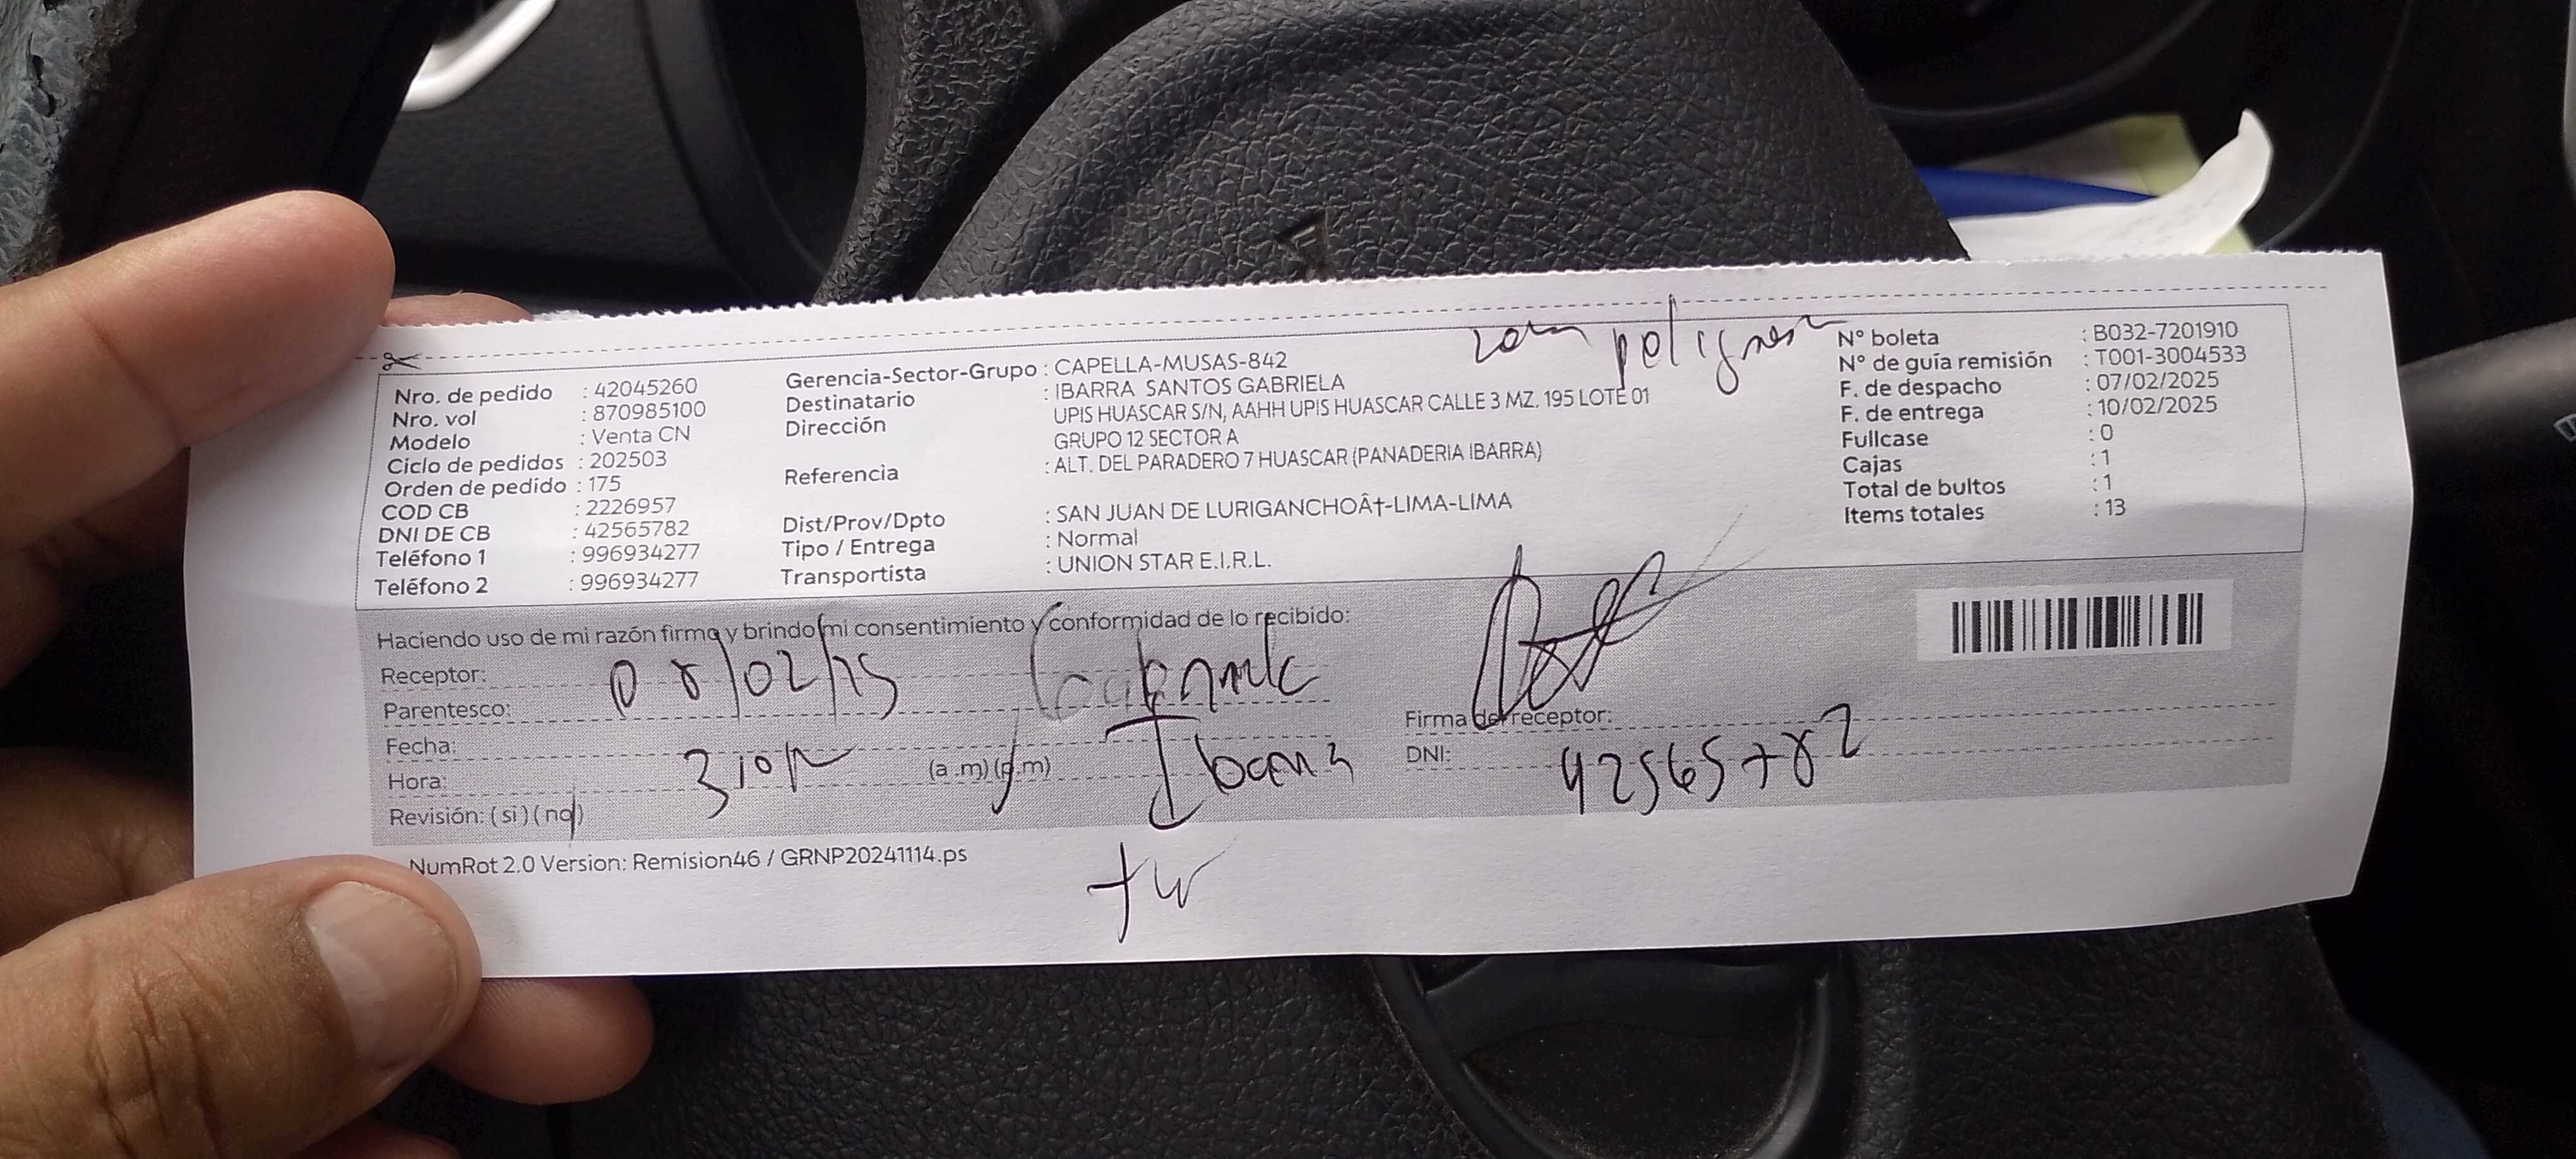 Nro. de pedido : 42045260
Nro. vol : 870985100
Modelo : Venta CN
Ciclo de pedidos : 202503
Orden de pedido : 175
COD CB : 2226957
DNI DE CB : 42565782
Teléfono 1 : 996934277
Teléfono 2 : 996934277
Gerencia-Sector-Grupo : CAPELLA-MUSAS-842
Destinatario : IBARRA SANTOS GABRIELA
Dirección UPIS HUASCAR S/N, AAHH UPIS HUASCAR CALLE 3 MZ. 195 LOTE 01
GRUPO 12 SECTOR A
Referencia : ALT. DEL PARADERO 7 HUASCAR (PANADERIA IBARRA)
Dist/Prov/Dpto : SAN JUAN DE LURIGANCHOÂ†-LIMA-LIMA
Tipo / Entrega : Normal
Transportista : UNION STAR E.I.R.L.
Nº boleta : B032-7201910
Nº de guía remisión : T001-3004533
F. de despacho : 07/02/2025
F. de entrega : 10/02/2025
Fullcase : 0
Cajas : 1
Total de bultos : 1
Items totales : 13
Haciendo uso de mi razón firmo y brindo mi consentimiento y conformidad de lo recibido:
Receptor:
Parentesco:
08/02/25
Fecha:
Hora:
(a .m) (p.m)
Revisión: (si) (no)
Firma del receptor:
DNI: 42565782
NumRot 2.0 Version: Remision46 / GRNP20241114.ps